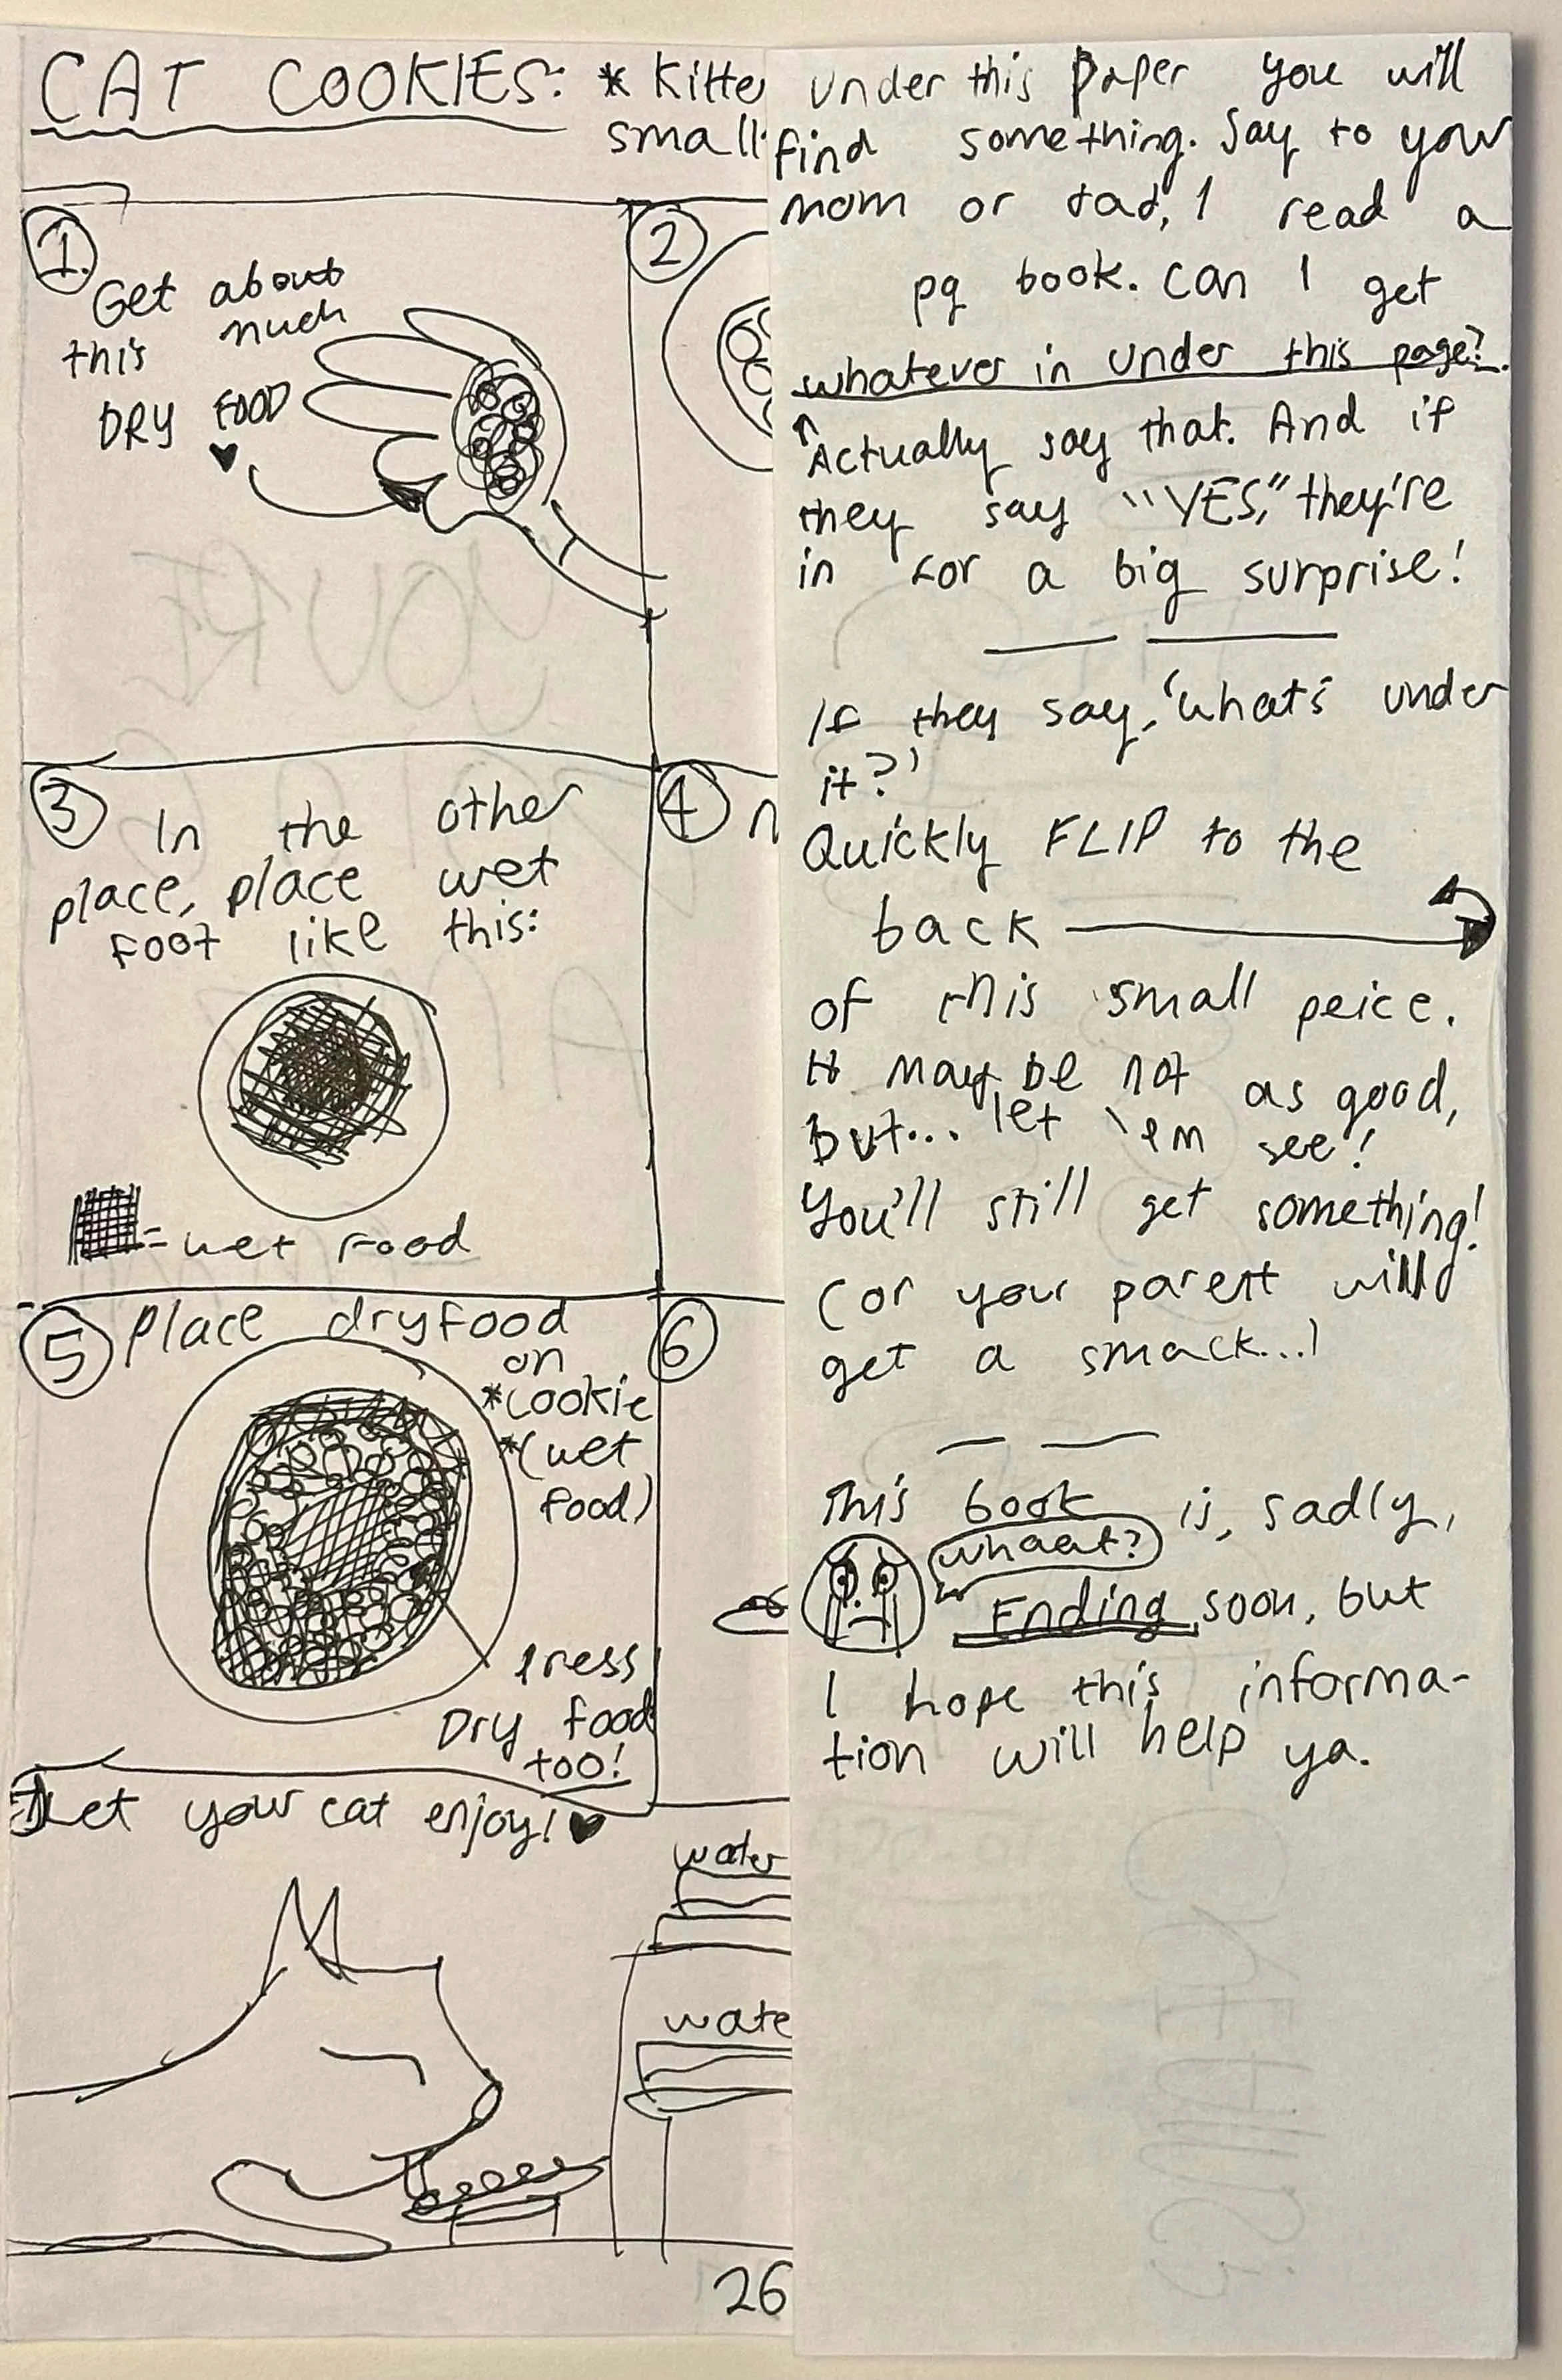 CAT COOKIES: * Kitte
small
1.
Get about
this much
DRY FOOD
2
3
In the other
place, place wet
foot like this:
= wet food
4
5
Place dryfood
on
*cookie
*(wet
food)
Press
Dry food
too!
6
Let your cat enjoy!
water
wate
26
Under this paper you will
find something. Say to your
mom or dad, I read a
pg book. Can I get
whatever in under this page?
Actually say that. And if
they say "YES," they're
in for a big surprise!
If they say, 'what's under
it?'
Quickly FLIP to the
back
of this small peice.
It may be not as good,
but... let 'em see!
You'll still get something!
(or your parent will
get a smack...)
This book is, sadly,
whaat?
Ending soon, but
I hope this informa-
tion will help ya.